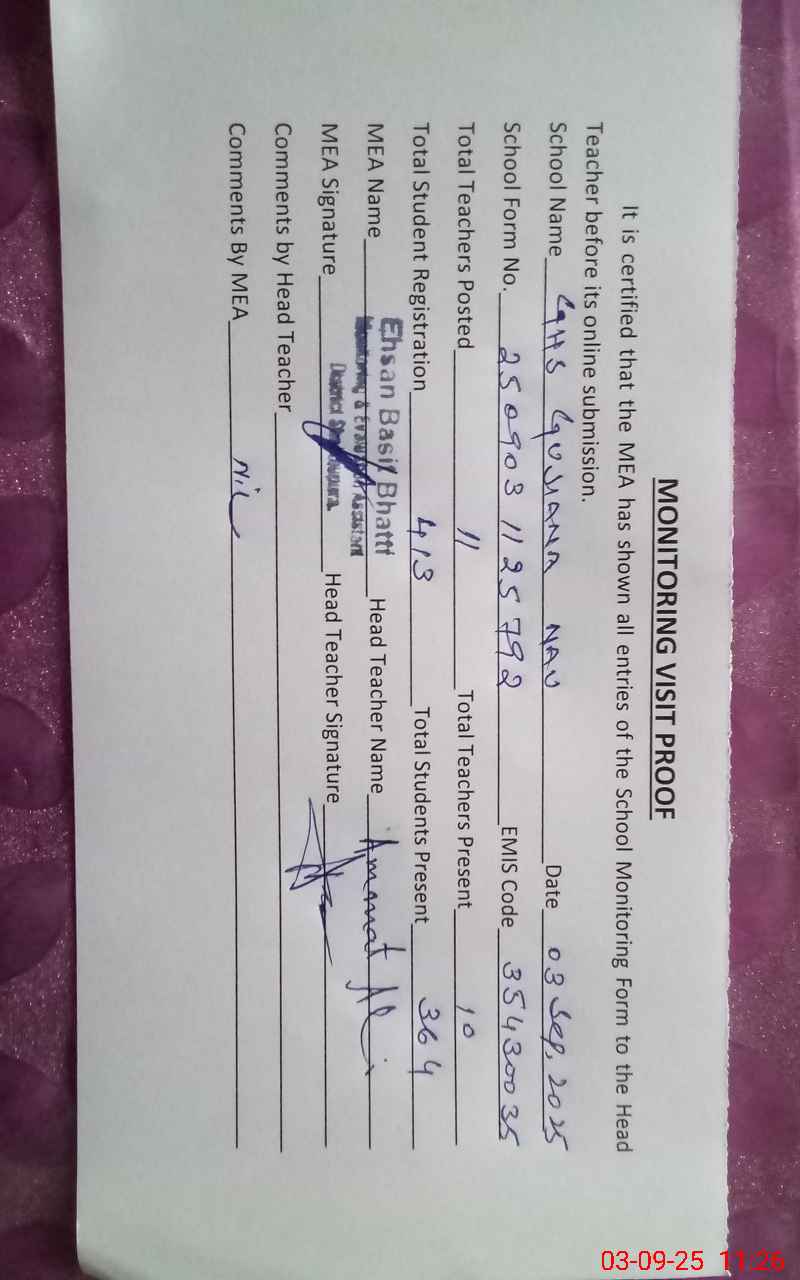 MONITORING VISIT PROOF
It is certified that the MEA has shown all entries of the School Monitoring Form to the Head
Teacher before its online submission.
School Name GHS GUJIANA NAU Date 03 Sep, 2025
School Form No. 250903 1125792 EMIS Code 35430035
Total Teachers Posted 11 Total Teachers Present 10
Total Student Registration 413 Total Students Present 364
MEA Name Ehsan Basit Bhatti Head Teacher Name Amanat Ali
Monitoring & Evaluation Assistant
District Sheikhupura.
MEA Signature Head Teacher Signature
Comments by Head Teacher
Comments By MEA Nil
03-09-25 11:26